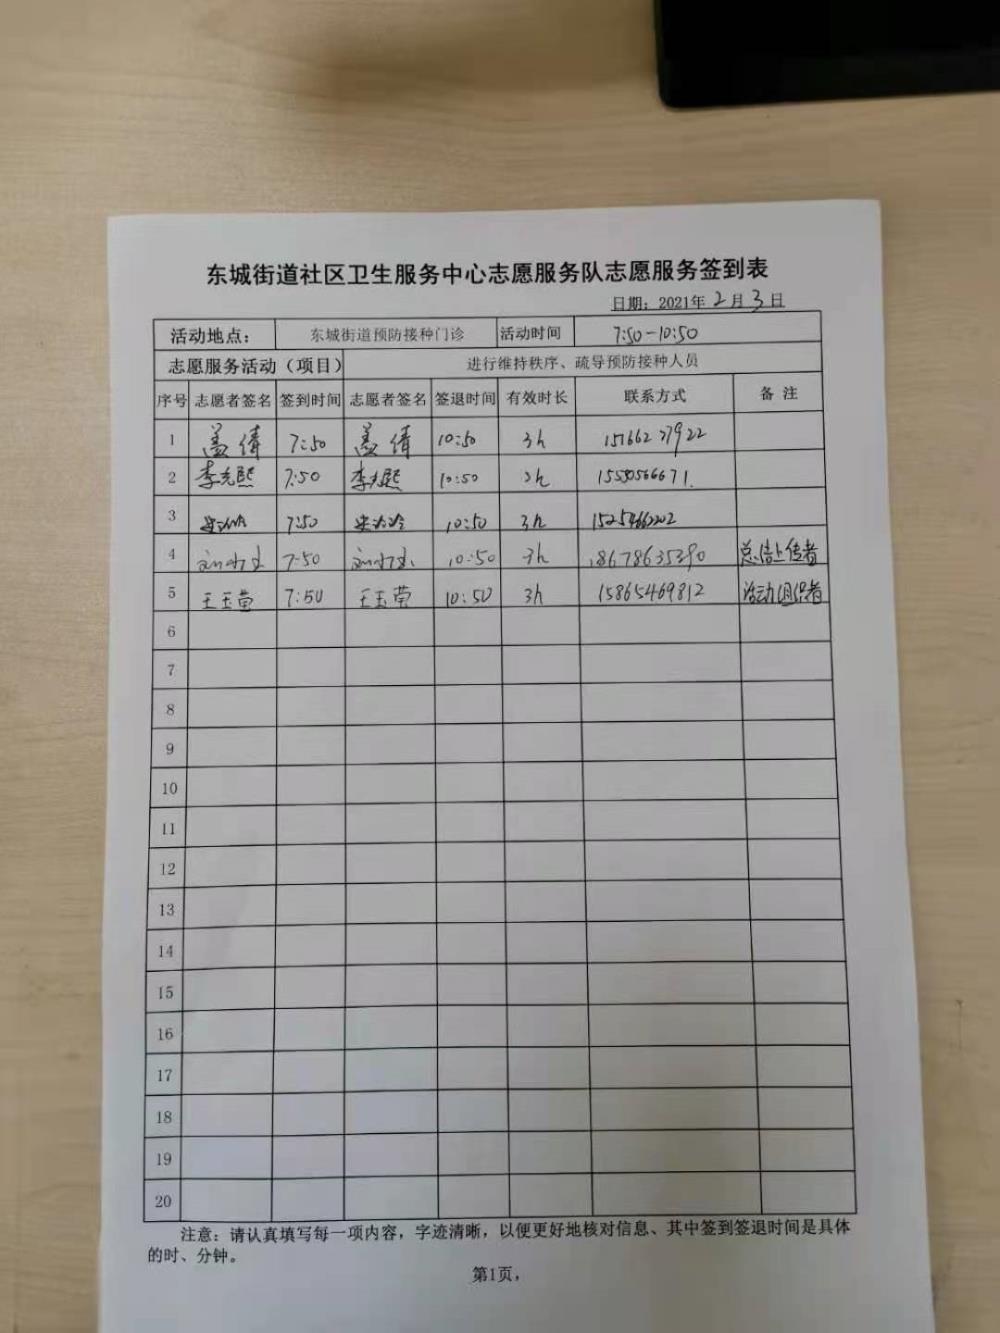 东城街道社区卫生服务中心志愿服务队志愿服务签到表
日期：2021年2月3日
活动地点： 东城街道预防接种门诊 活动时间 7:50-10:50
志愿服务活动（项目） 进行维持秩序、疏导预防接种人员
序号 志愿者签名 签到时间 志愿者签名 签退时间 有效时长 联系方式 备注
1 盖倩 7:50 盖倩 10:50 3h 15766227922
2 李光熙 7:50 李光熙 10:50 3h
3 7:50 10:50 3h
4 7:50 10:50 3h 18678635390 总结上传者
5 王玉莹 7:50 王玉莹 10:50 3h 15865469812 活动组织者
6
7
8
9
10
11
12
13
14
15
16
17
18
19
20
注意：请认真填写每一项内容，字迹清晰，以便更好地核对信息、其中签到签退时间是具体
的时、分钟。
第1页，